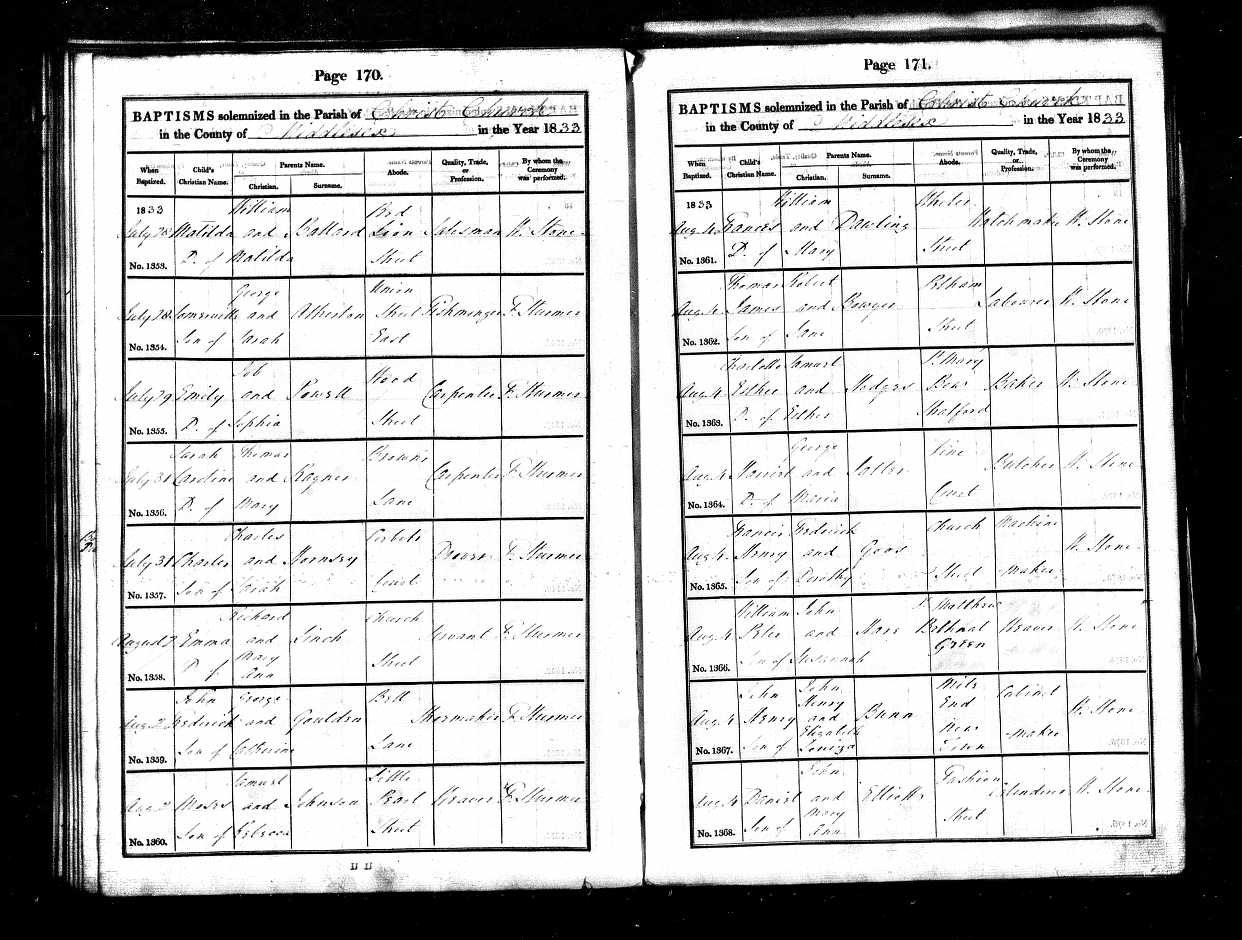 Page 170.
BAPTISMS solemnized in the Parish of Christ Church
in the County of Middlesex in the Year 1833
When Baptized. Child's Christian Name. Parents Name. Christian. Surname. Abode. Quality, Trade, or Profession. By whom the Ceremony was performed.
1833 William Red
July 28 Matilda and Ballard Lion Salesman W. Stone
No. 1353. D. of Matilda Street
George Union
July 28 Somerville and Atherton Street Fishmonger F. Sturmer
No. 1354. Son of Sarah East
Job Wood
July 29 Emily and Powell Carpenter F. Sturmer
No. 1355. D. of Sophia Street
Sarah Thomas Browns
July 31 Caroline and Rayner Carpenter F. Sturmer
No. 1356. D. of Mary Lane
Charles Corbets
July 31 Charles and Hornsey F. Sturmer
No. 1357. Son of Sarah Court
Richard Church
August 2 Emma and Finch Servant F. Sturmer
No. 1358. D. of Mary Ann Street
John George Bell
Aug. 2 Frederick and Goulden Shoemaker F. Sturmer
No. 1359. Son of Catherine Lane
Samuel Little
Aug. 2 Moses and Johnson Pearl Weaver F. Sturmer
No. 1360. Son of Rebecca Street
Page 171.
BAPTISMS solemnized in the Parish of Christ Church
in the County of Middlesex in the Year 1833
When Baptized. Child's Christian Name. Parents Name. Christian. Surname. Abode. Quality, Trade, or Profession. By whom the Ceremony was performed.
1833 William Wheler
Aug. 4 Frances and Dawling Watchmaker W. Stone
No. 1361. D. of Mary Street
Thomas Robert Pelham
Aug. 4 James and Bowyer Labourer W. Stone
No. 1362. Son of Jane Street
Charlotte Samuel St. Mary
Aug. 4 Esther and Hedges Bow Baker W. Stone
No. 1363. D. of Esther Stratford
George Vine
Aug. 4 Harriet and Salter Butcher W. Stone
No. 1364. D. of Maria Court
Francis Frederick Church Machine
Aug. 4 Henry and Goos W. Stone
No. 1365. Son of Dorothy Street Maker
William John St. Matthew
Aug. 4 Peter and Mare Bethnal Weaver W. Stone
No. 1366. Son of Susannah Green
John John Mile Cabinet
Aug. 4 Henry Henry and Bunn End W. Stone
No. 1367. Son of Elizabeth Louisa New Town Maker
John Fashion
Aug. 4 Daniel and Elliott Calenderer W. Stone
No. 1368. Son of Mary Ann Street